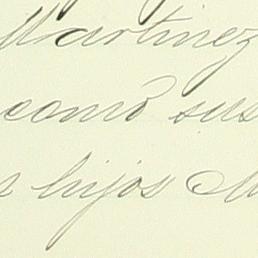 Martinez
como sus
hijos